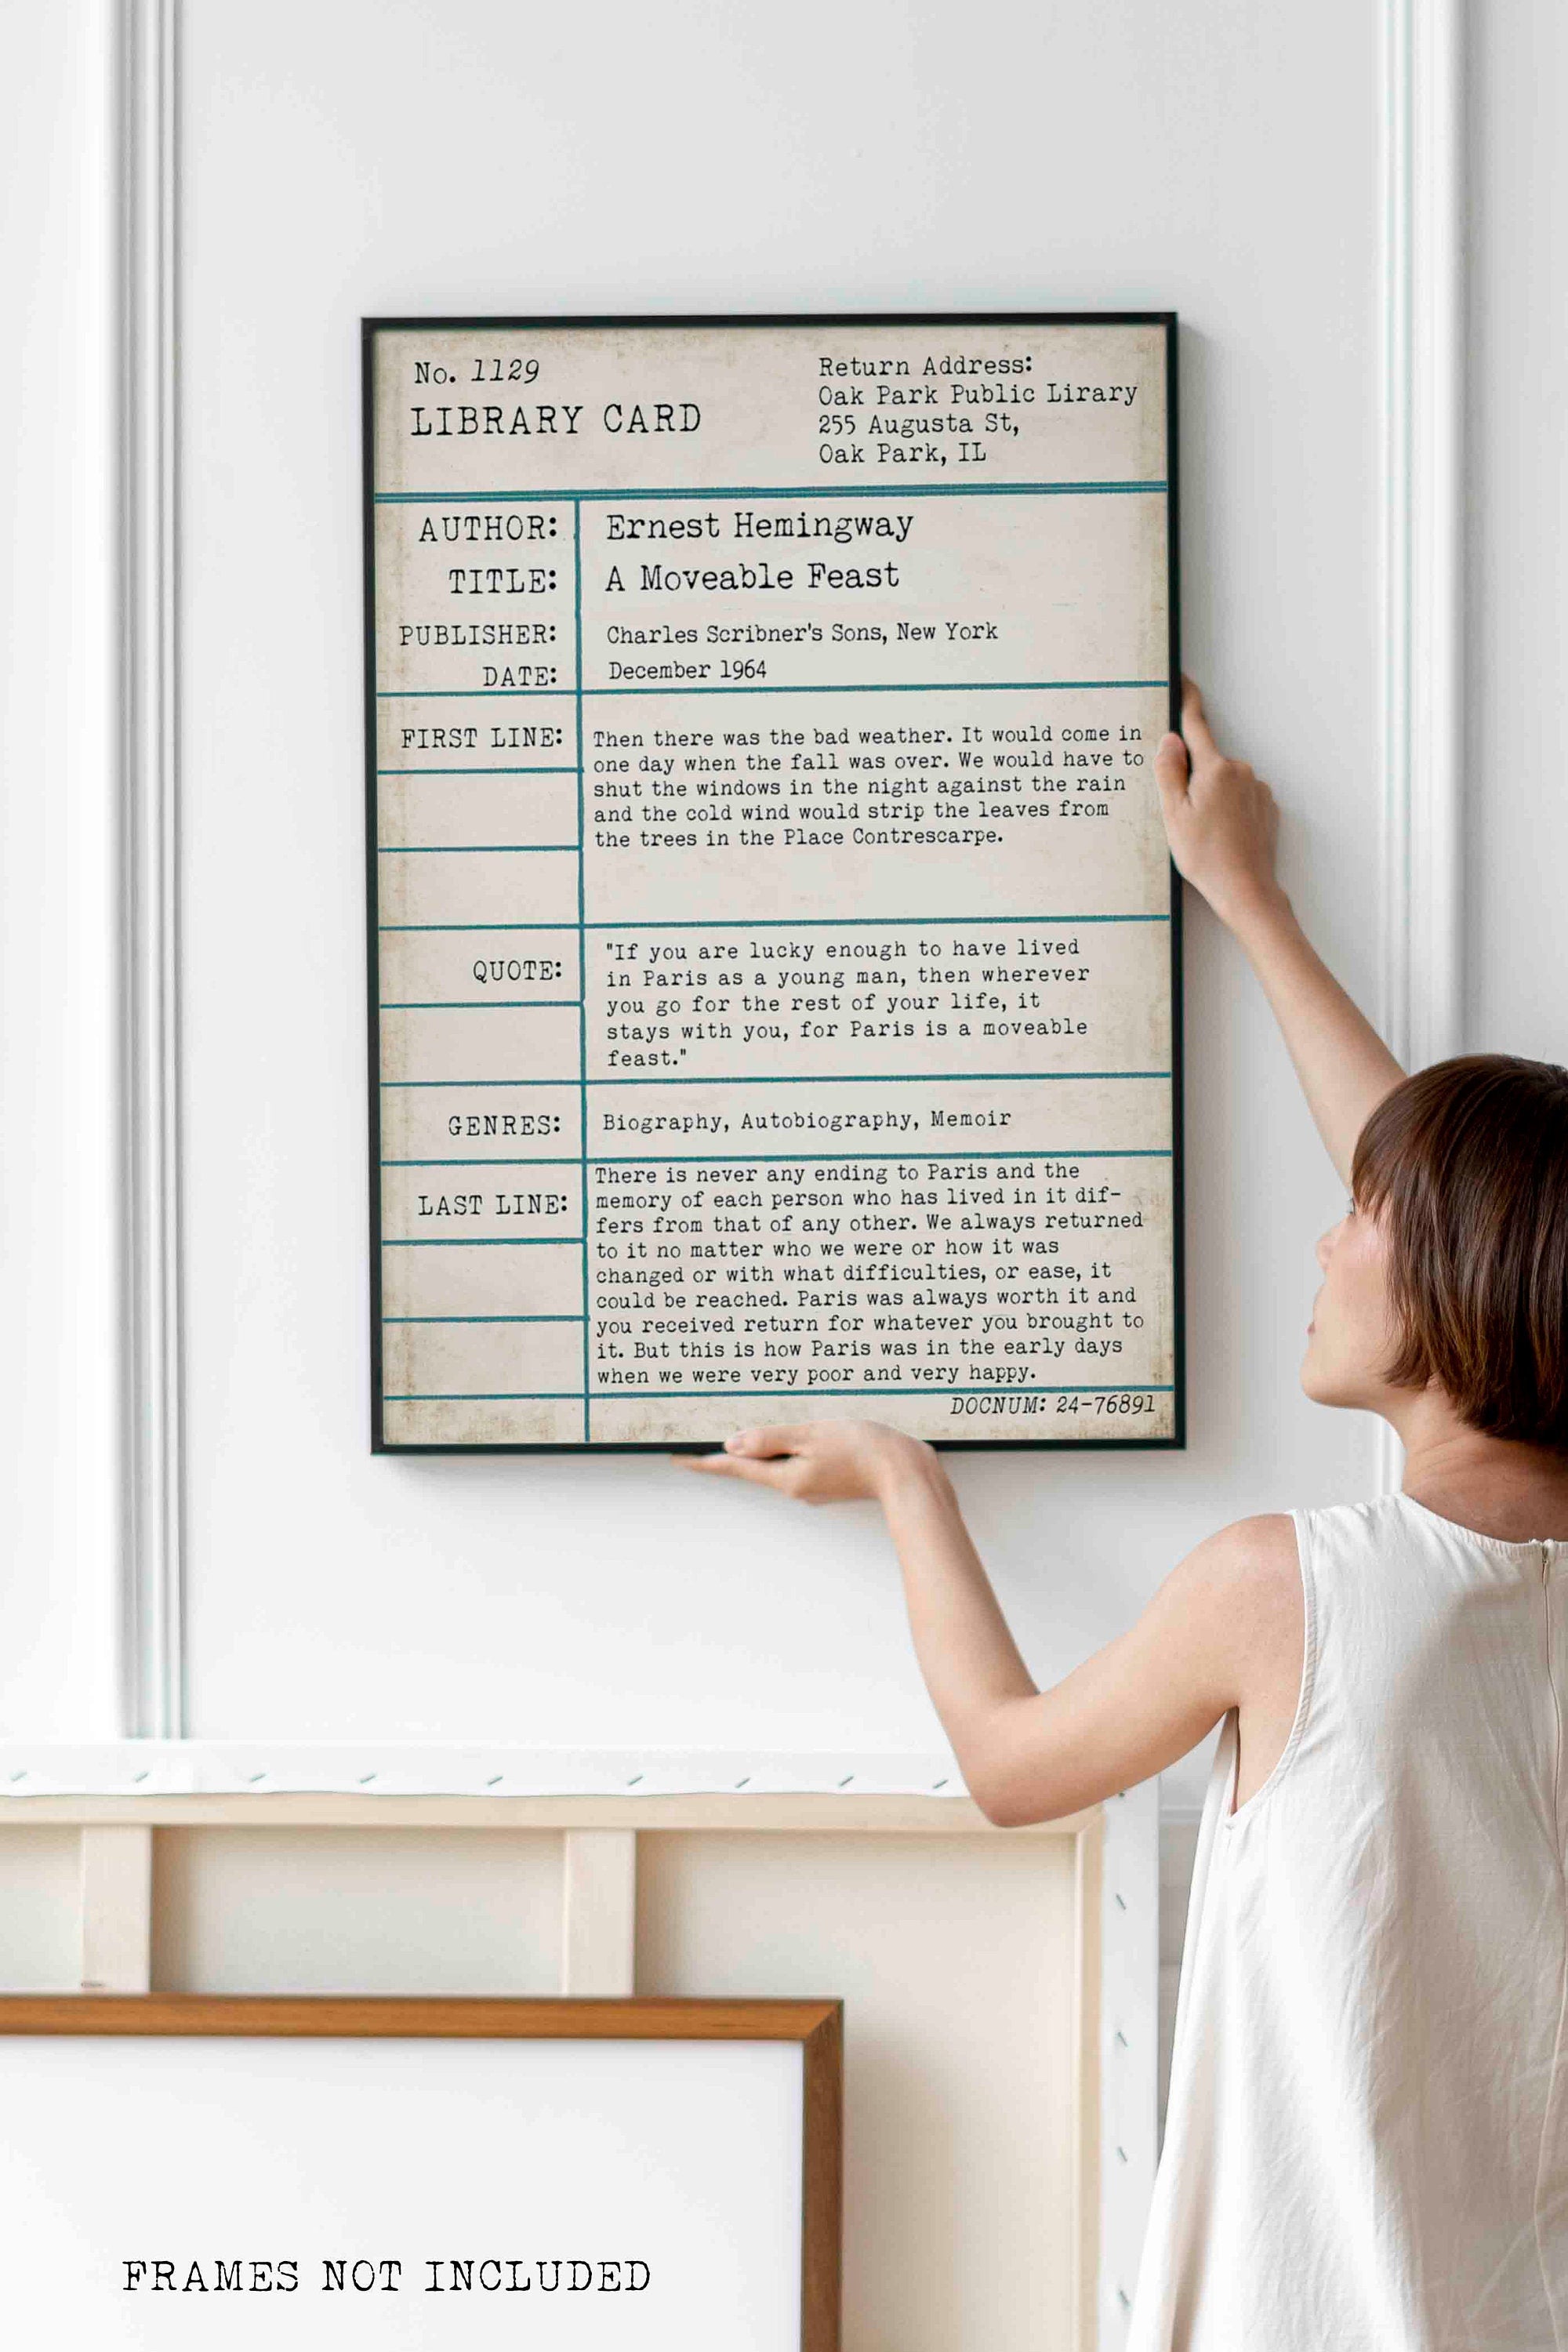 No. 1129
LIBRARY CARD
Return Address:
Oak Park Public Lirary
255 Augusta St,
Oak Park, IL
AUTHOR: Ernest Hemingway
TITLE: A Moveable Feast
PUBLISHER: Charles Scribner's Sons, New York
DATE: December 1964
FIRST LINE: Then there was the bad weather. It would come in
one day when the fall was over. We would have to
shut the windows in the night against the rain
and the cold wind would strip the leaves from
the trees in the Place Contrescarpe.
QUOTE: "If you are lucky enough to have lived
in Paris as a young man, then wherever
you go for the rest of your life, it
stays with you, for Paris is a moveable
feast."
GENRES: Biography, Autobiography, Memoir
LAST LINE: There is never any ending to Paris and the
memory of each person who has lived in it dif-
fers from that of any other. We always returned
to it no matter who we were or how it was
changed or with what difficulties, or ease, it
could be reached. Paris was always worth it and
you received return for whatever you brought to
it. But this is how Paris was in the early days
when we were very poor and very happy.
DOCNUM: 24-76891
FRAMES NOT INCLUDED